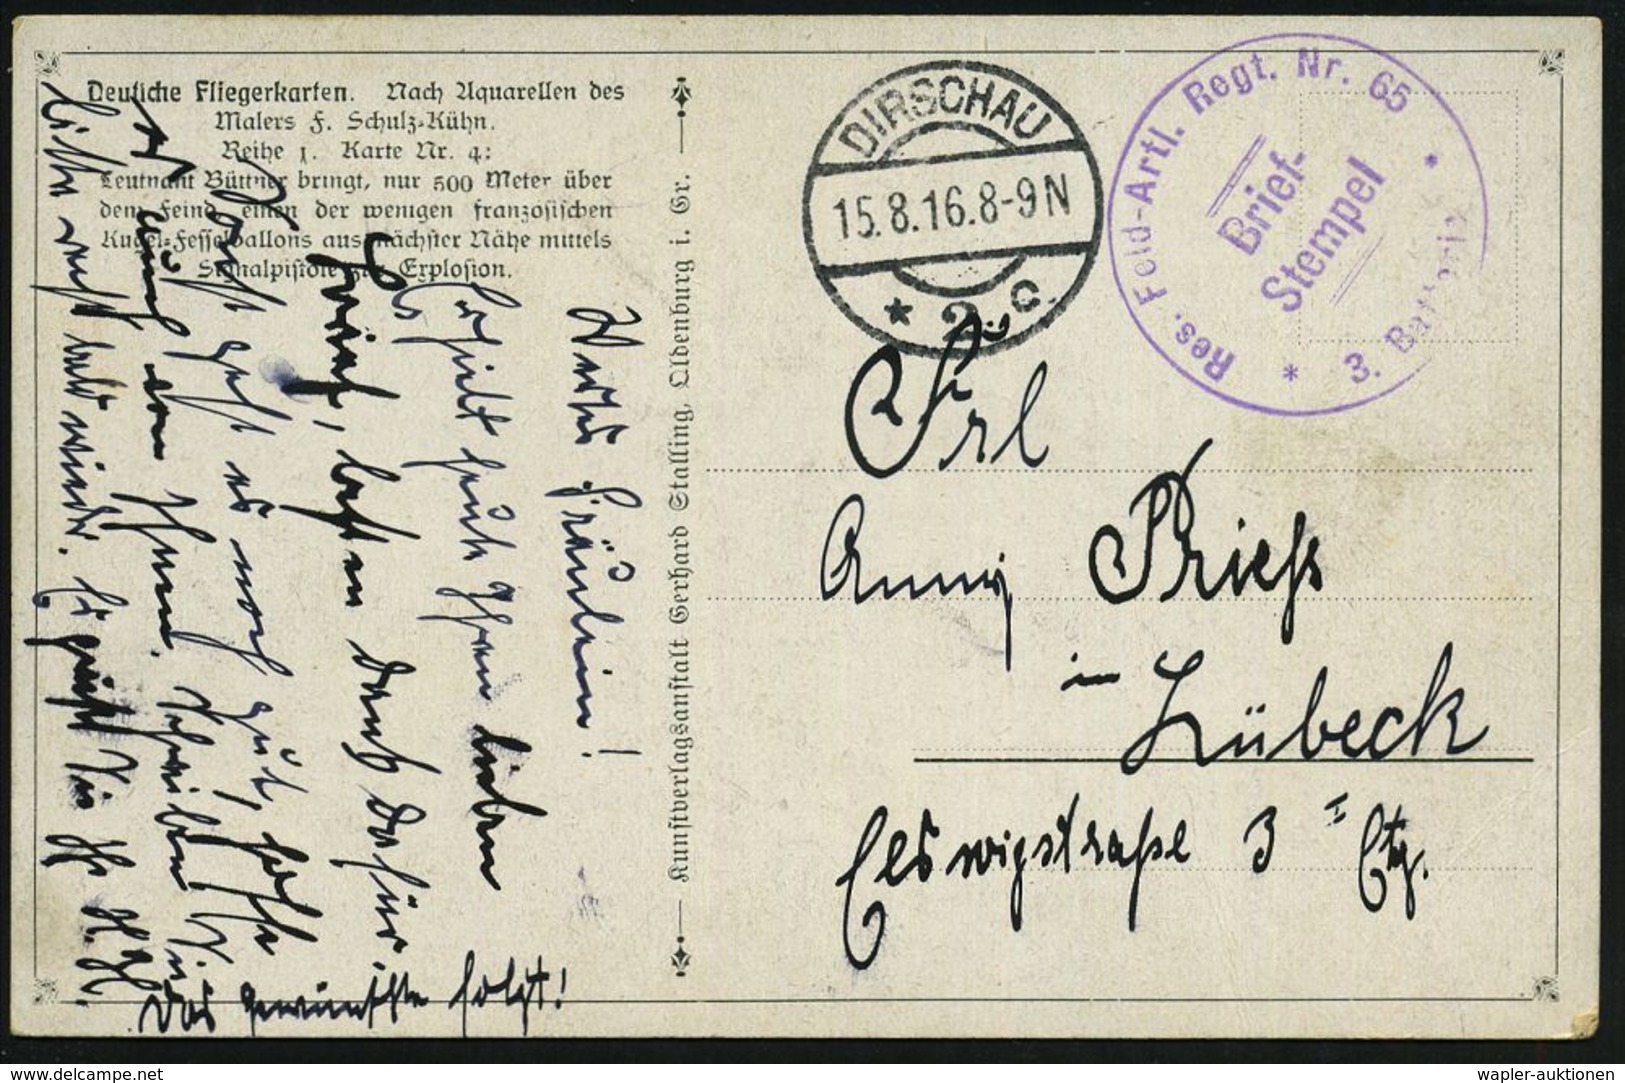 Deutsche Fliegerkarten. Nach Aquarellen des
Malers F. Schulz-Kühn.
Reihe 1. Karte Nr. 4:
Leutnant Büttner bringt, nur 500 Meter über
dem Feind, einen der wenigen französischen
Kugel-Fesselballons aus nächster Nähe mittels
Signalpistole zur Explosion.
Wertes Fräulein!
Erhielt heute Ihren lieben
Brief, besten Dank dafür.
geht es noch gut, hoffe
auch von Ihnen. Schreiben Sie
bitte recht bald wieder. Es grüßt Sie
Das gewünschte folgt!
Kunstverlagsanstalt Gerhard Stalling, Oldenburg i. Gr.
DIRSCHAU
15.8.16.8-9N
* 2 c.
Res. Feld-Artl. Regt. Nr. 65
* 3. Batterie *
Brief-
Stempel
Frl
Anny Prieß
in Lübeck
3 I Etg.
www.delcampe.net
wapler-auktionen